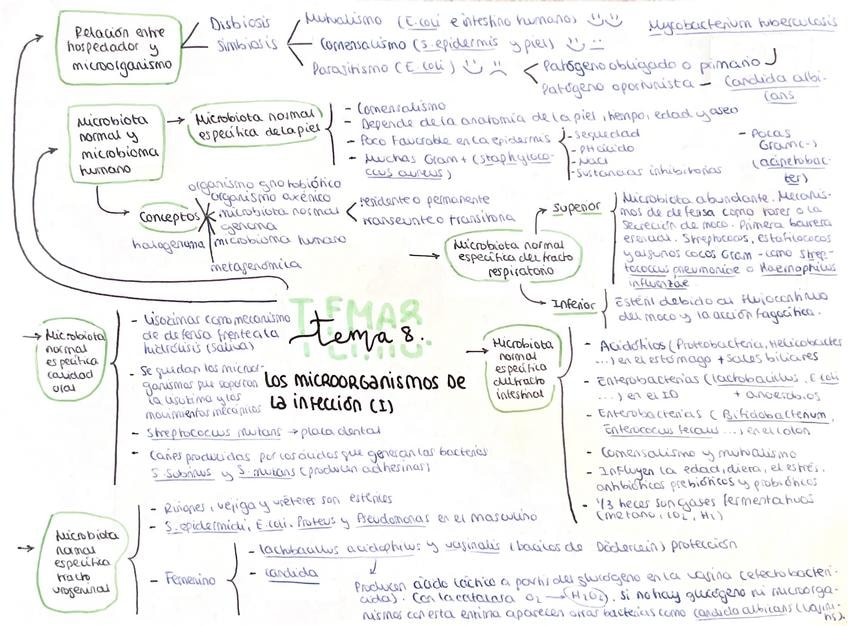 Relación entre
hospedador y
microorganismo
Disbiosis
Simbiosis
Mutualismo (E.coli e intestino humano)
Comensalismo (S. epidermis y piel)
Parasitismo (E. coli)
Mycobacterium tuberculosis
Patógeno obligado o primario
Patógeno oportunista – Candida albi-
cans
Microbiota
normal y
microbioma
humano
Microbiota normal
específica de la piel
- Comensalismo
- Depende de la anatomía de la piel, tiempo, edad y aseo
- Poco favorable en la epidermis
- Sequedad
- PH ácido
- NaCl
- Sustancias inhibitorias
- Muchas Gram + (staphyloco-
ccus aureus)
- Pocas
Gram(-)
(acinetobac-
ter)
Conceptos
organismo gnotobiótico
organismo axénico
microbiota normal
residente o permanente
transeunte o transitoria
genoma
hologenoma
microbioma humano
metagenómica
Microbiota normal
específica del tracto
respiratorio
Superior
Microbiota abundante. Mecanis-
mos de defensa como toser o la
secreción de moco. Primera barrera
esencial. Streptococos, estafilococos
y algunos cocos Gram - como Strep-
tococcus pneumoniae o Haemophilus
influenzae.
Inferior
Estéril debido al flujo continuo
del moco y la acción fagocítica.
TEMA 8
tema 8.
LOS MICROORGANISMOS DE
LA INFECCIÓN (I)
Microbiota
normal
específica
cavidad
oral
- Lisozimas como mecanismo
de defensa frente a la
hidrólisis (saliva)
- Se quedan los micror-
ganismos que soportan
la lisozima y los
movimientos mecánicos
- Streptococcus mutans → placa dental
- Caries producidas por los ácidos que generan las bacterias
S. subrinus y S. mutans (producen adhesinas)
Microbiota
normal
específica
del tracto
intestinal
- Acidófilos (Proteobacteria, Helicobacter
...) en el estómago + sales biliares
- Enterobacterias (lactobacillus, E coli
...) en el ID + anaerobios
- Enterobacterias (Bifidobacterium,
Enterococcus fecalis ...) en el colon
- Comensalismo y mutualismo
- Influyen la edad, dieta, el estrés,
antibióticos prebióticos y probióticos
- 1/3 heces son gases fermentativos
(metano, CO2, H2)
Microbiota
normal
específica
tracto
urogenital
- Riñones, vejiga y uréteres son estériles
- S. epidermidi, E.coli, Proteus y Pseudomonas en el masculino
- Femenino
- lactobacillus acidophilus y vaginalis (bacilos de Döderlein) protección
- candida
Producen ácido láctico a partir del glucógeno en la vagina (efecto bacteri-
cida). Con la catalasa O2 → (H2O2). Si no hay glucógeno ni microorga-
nismos con esta enzima aparecen otras bacterias como candida albicans